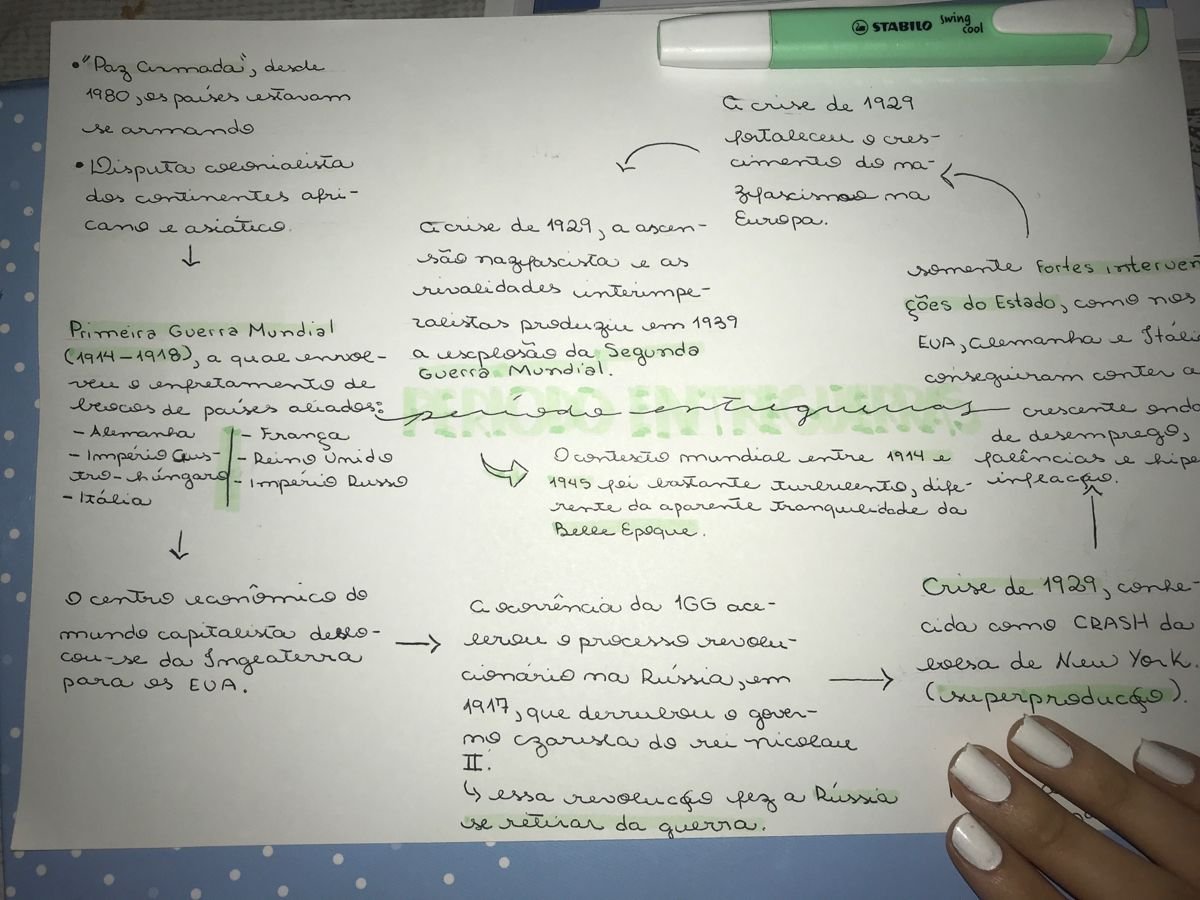 STABILO swing cool
• "Paz Armada", desde
1980, os países estavam
se armando
• Disputa colonialista
dos continentes afri-
cano e asiático.
Primeira Guerra Mundial
(1914-1918), a qual envol-
veu o enfretamento de
blocos de países aliados:
- Alemanha
- Império Aus-
tro-húngaro
- Itália
- França
- Reino Unido
- Império Russo
O centro econômico do
mundo capitalista deslo-
cou-se da Inglaterra
para os EUA.
A ocorrência da 1GG ace-
lerou o processo revolu-
cionário na Rússia, em
1917, que derrubou o gover-
no czarista do rei nicolau
II.
↳ essa revolução fez a Rússia
se retirar da guerra.
Crise de 1929, conhe-
cida como CRASH da
bolsa de New York.
(superprodução).
somente fortes interven
ções do Estado, como nos
EUA, Alemanha e Itáli
conseguiram conter a
crescente onda
de desemprego,
falências e hipe
inflação.
A crise de 1929
fortaleceu o cres-
cimento do na-
zifascismo na
Europa.
A crise de 1929, a ascen-
são nazifascista e as
rivalidades interimpe-
ralistas produziu em 1939
a explosão da Segunda
Guerra Mundial.
PERÍODO ENTREGUERRAS
período entreguerras
O contexto mundial entre 1914 e
1945 foi bastante turbulento, dife-
rente da aparente tranquilidade da
Belle Epoque.